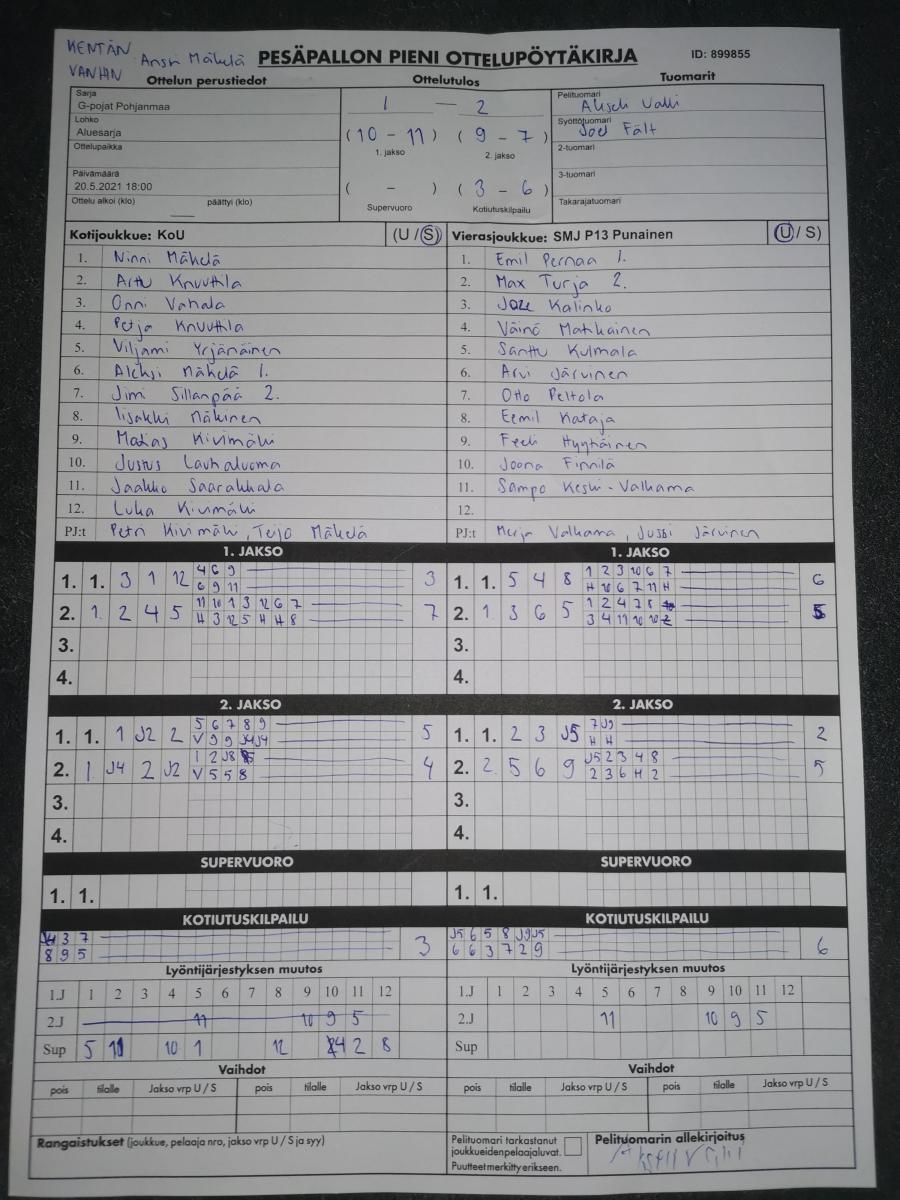 KENTÄN
VANHIN Anssi Mäkelä PESÄPALLON PIENI OTTELUPÖYTÄKIRJA ID: 899855
Ottelun perustiedot Ottelutulos Tuomarit
Sarja
G-pojat Pohjanmaa
Lohko
Aluesarja
Ottelupaikka
Päivämäärä
20.5.2021 18:00
Ottelu alkoi (klo) päättyi (klo)
1 — 2
(10 - 11) (9 - 7)
1. jakso 2. jakso
( - ) (3 - 6)
Supervuoro Kotiutuskilpailu
Pelituomari
Syöttötuomari
Joel Fält
2-tuomari
3-tuomari
Takarajatuomari
Kotijoukkue: KoU (U / S)
1. Ninni Mäkelä
2. Arttu Knuuttila
3. Onni Vahala
4. Petja Knuuttila
5. Viljami Yrjänäinen
6. Aleksi Mäkelä 1.
7. Jimi Sillanpää 2.
8. Iisakki Mäkinen
9. Matias Kivimäki
10. Justus Lauhaluoma
11. Jaakko Saarakkala
12. Luka Kivimäki
PJ:t Petri Kivimäki, Teijo Mäkelä
Vierasjoukkue: SMJ P13 Punainen (U / S)
1. Emil Pernaa 1.
2. Max Turja 2.
3. Joze Kalinko
4. Väinö Matikainen
5. Santtu Kulmala
6. Arvi Järvinen
7. Otto Peltola
8. Eemil Kataja
9. Feeli Hyytiäinen
10. Joona Finnilä
11. Sampo Keski-Valkama
12.
PJ:t Merja Valkama, Jussi Järvinen
1. JAKSO
1. 1. 3 1 12 4 6 9 3
6 9 11
2. 1. 2 4 5 11 10 1 3 12 6 7 7
H 3 12 5 H H 8
3.
4.
1. JAKSO
1. 1. 5 4 8 1 2 3 10 6 7 6
H 10 6 7 11 H
2. 1. 3 6 5 1 2 4 7 8 5
3 4 11 10 10
3.
4.
2. JAKSO
1. 1. 1 J2 2 5 6 7 8 9 5
V 9 9 J4 J4
2. 1 J4 2 J2 1 2 J8 4
V 5 5 8
3.
4.
2. JAKSO
1. 1. 2 3 J5 7 J9 2
H H
2. 2. 5 6 9 J5 2 3 4 8 5
2 3 6 H 2
3.
4.
SUPERVUORO
1. 1.
SUPERVUORO
1. 1.
KOTIUTUSKILPAILU
J4 3 7 3
8 9 5
KOTIUTUSKILPAILU
J5 6 5 8 J9 J5 6
6 6 3 7 2 9
Lyöntijärjestyksen muutos
1.J 1 2 3 4 5 6 7 8 9 10 11 12
2.J 11 10 9 5
Sup 5 11 10 1 12 4 2 8
Lyöntijärjestyksen muutos
1.J 1 2 3 4 5 6 7 8 9 10 11 12
2.J 11 10 9 5
Sup
Vaihdot
pois tilalle Jakso vrp U / S pois tilalle Jakso vrp U / S
Vaihdot
pois tilalle Jakso vrp U / S pois tilalle Jakso vrp U / S
Rangaistukset (joukkue, pelaaja nro, jakso vrp U / S ja syy)
Pelituomari tarkastanut
joukkueidenpelaajaluvat.
Puutteet merkitty erikseen.
Pelituomarin allekirjoitus